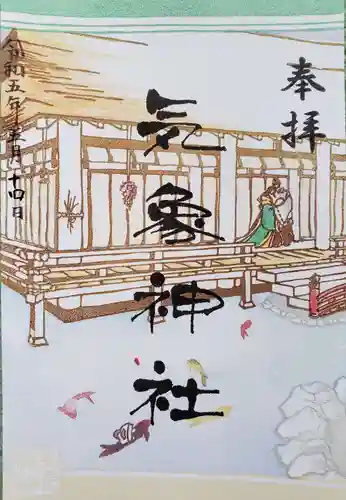 奉拝
気象神社
令和五年五月十四日